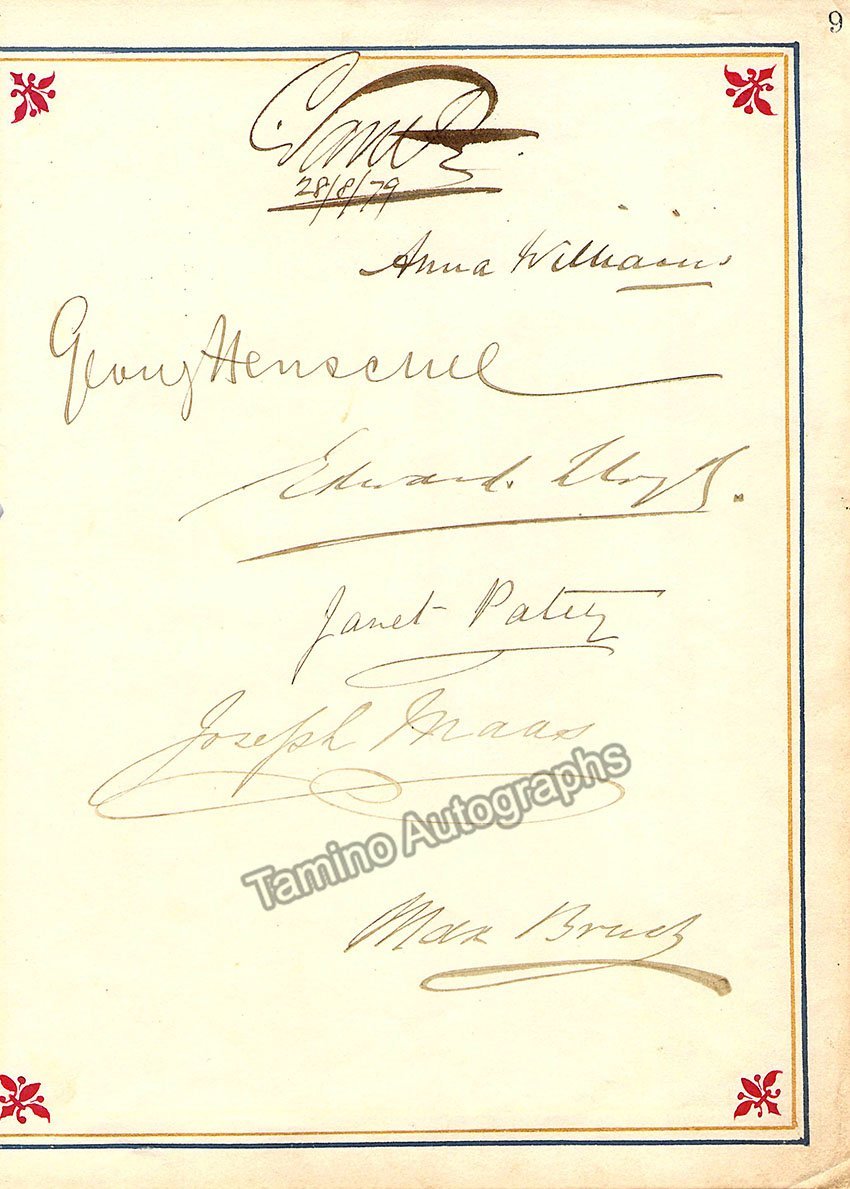 9
28/8/79
Anna Williams
Georg Henschel
Edward Lloyd.
Janet Patey
Joseph Maas
Tamino Autographs
Max Bruch